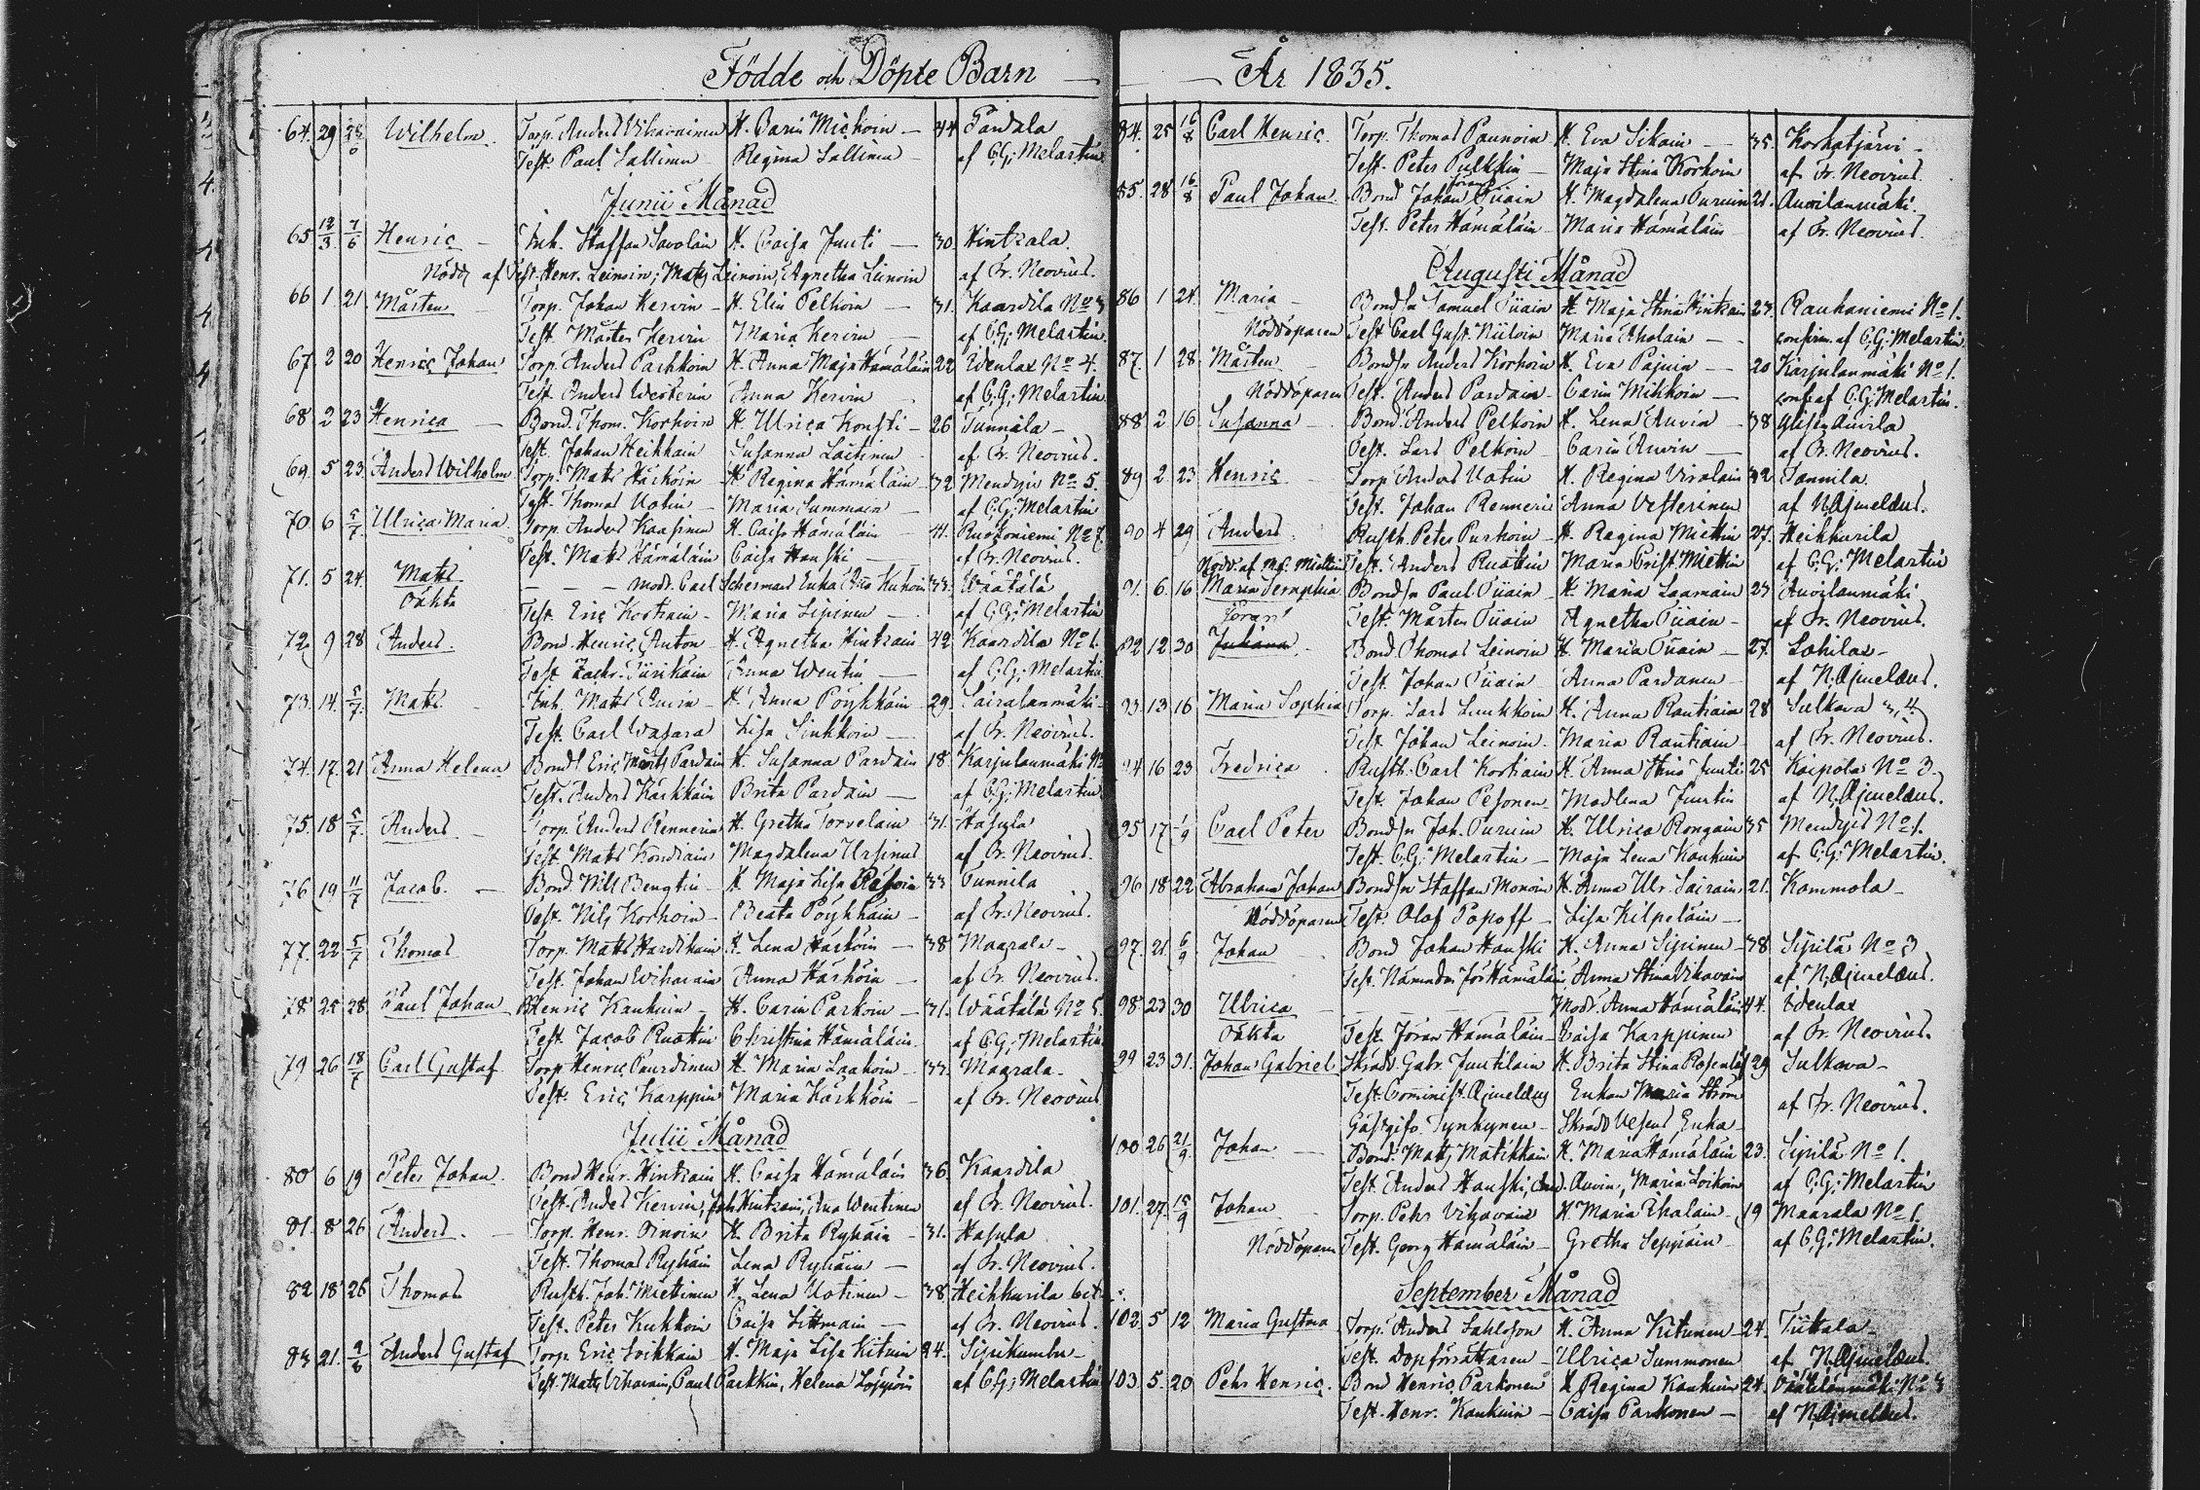 Födde och Döpte Barn
64. 29 Wilhelm. Torp. Anders Vihavainen H. Carin Michoin 44 Pardala
Test. Paul Lallinen Regina Lallinen af C.G. Melartin
Junii Månad
65 12/3 7/6 Henric Inh. Staffan Savolain H. Caisa Junti 30 Hintzala.
Nödd. af Test. Henr. Leinoin, Mats Leinoin, Agnetha Leinoin af Fr. Neovius.
66 1 21 Mårten Torp. Johan Kervin H. Elin Pelkoin 31. Kaardila No 3
Test. Mårten Kervin Maria Kervin af C.G. Melartin
67. 2 20 Henric Johan Torp. Anders Parkkoin H. Anna Maja Hämäläin 22 Idenlax No 4.
Test. Anders Westerin Anna Kervin af C.G. Melartin
68 2 23 Henrica Bond. Thom. Korhoin H. Ulrica Konsti 26 Tunnala
Test. Johan Heikkain Susanna Laitinen af Fr. Neovius.
69. 5 23 Anders Wilhelm Torp. Mats Häxköin H. Regina Hämäläin 32 Mendyis No 5
Test. Thomas Uotin Maria Summain af C.G. Melartin
70 6 5/7. Ulrica Maria. Torp. Anders Kaasinen H. Caisa Hämäläin 41. Ruokoniemi No 7.
Test. Mats Hämäläin Caisa Hanski af Fr. Neovius.
71. 5 24. Mats. Modr. Carl Schermans Enka 33. Wäätälä
Oäkta Test. Eric Kortiain Maria Sipinen af C.G. Melartin
72 9 28 Anders. Bond. Henric Anton H. Agnetha Hintzain 42 Kaardila No 1.
Test. Zachr. Anna Wentin af C.G. Melartin
73. 14. 5/7. Mats. Inh. Mats Auvin H. Anna Pöyhkäin 29. Sairalanmäki
Test. Carl Wasara Lisa Sinkkoin af Fr. Neovius.
74. 17. 21 Anna Helena Bonds. Eric Mårts Pardain H. Susanna Pardain 18 Karjulanmäki No
Test. Anders Kärkkäin Brita Pardain af C.G. Melartin
75. 18 5/7. Anders. Torp. Anders Rennerin H. Gretha Torvelain 31. Hasula
Test. Mats Kondiain Magdalena Ursinus af Fr. Neovius.
76 19 11/7 Jacob. Bond. Nils Bengtin H. Maja Lisa Räsöin 33 Tunnila
Test. Nils Korhoin Beata Pöyhkäin af Fr. Neovius.
77. 22 5/7 Thomas Torp. Mats Hardikain H. Lena Häxköin 38 Maarala
Test. Johan Wihavain Anna Häxköin af Fr. Neovius.
78 25 28 Paul Johan Henric Kankuin H. Carin Parkoin 31. Wäätälä No 5.
Test. Jacob Ruottin Christina Hämäläin. af C.G. Melartin
79 26 18/7 Carl Gustaf. Torp. Henric Paurdinen H. Maria Laakoin 33. Maarala
Test. Eric Karppin Maria Kärkköin af Fr. Neovius
Julii Månad
80 6 19 Peter Johan. Bond Henr. Hintzain H. Caisa Hämäläin 36. Kaardila
Test. Anders Kervin, Joh. Hintzain, Ana Wentinen af Fr. Neovius.
81. 8 26 Anders. Torp. Henr. Oinoin H. Brita Ryhäin 31. Hasula
Test. Thomas Ryhäin Lena Ryhäin af Fr. Neovius.
82 18 26 Thomas Rusth. Joh. Miettinen H. Lena Uotinen 38 Heikkurila
Test. Peter Kukkoin Caisa Littmain af Fr. Neovius.
83 21. 2/8 Anders Gustaf Torp. Eric Loikkain H. Maja Lisa Kituin 24. Sipikumbu
Test. Mats Vihavain, Paul Parkkin, Helena Loppöin af C.G. Melartin
År 1835.
84. 25 16/8 Carl Henric. Torp. Thomas Paunoin H. Eva Sikain 35. Korkatjärvi
Test. Peter Pulkkin Maja Stina Korhoin af Fr. Neovius.
85. 28 16/8 Paul Johan. Bond Johan Tiiain H. Magdalena Puruin 21. Auvilanmäki.
Test. Peter Hämäläin Maria Hämäläin af Fr. Neovius.
Augusti Månad
86 1 24. Maria Bonds. Samuel Tiiain H. Maja Stina Hintzain 23. Rauhaniemi No 1.
Nöddöparen Test. Carl Gust. Niiloin Maria Aholain confirm. af C.G. Melartin
87. 1 28. Mårten Bonds. Anders Korhoin H. Eva Pajuin 20 Karjulanmäki No 1.
Nöddöparen Test. Anders Pardain Carin Mikkoin conf. af C.G. Melartin.
88 2 16. Susanna Bond. Anders Pelkoin H. Lena Auvin 38 Auvila
Test. Lars Pelkoin Carin Auvin af Fr. Neovius.
89 2 23 Henric Torp. Anders Uotin H. Regina Virolain 42 Tannila
Test. Johan Rennerin Anna Vesterinen af N. Ajmelæus.
90 4 29 Anders. Rusth. Peter Purhoin H. Regina Miettin 27. Heikkurila
Nödd. af Miettin Test. Anders Ruottin Maria Crist. Miettin af C.G. Melartin
91. 6. 16 Maria Seraphia Bonds. Paul Tiiain H. Maria Laamain 23 Auvilanmäki
Test. Mårten Tiiain Agnetha Tiiain af Fr. Neovius.
92 12 30 Göran Juhana. Bond. Thomas Leinoin H. Maria Tiiain 27. Lohilax
Test. Johan Tiiain Anna Pardanen af N. Ajmelæus.
93. 13 16 Maria Sophia Torp. Lars Luukkoin H. Anna Rautiain 28 Sulkava 3, 4.
Test. Johan Leinoin. Maria Rautiain af Fr. Neovius.
94 16 23 Fredrica Rusth. Carl Kortiain H. Anna Stina Junti 25 Kaipola No 3.
Test. Johan Pesonen Madlena Juntin af N. Ajmelæus.
95 17 1/9 Carl Peter Bonds. Joh. Puruin H. Ulrica Rongain 35 Mendyis No 1.
Test. C.G. Melartin Maja Lena Kankuin af C.G. Melartin.
96 18 22 Abraham Johan Bonds. Staffan Monoin H. Anna Ulr. Sairain 21. Kammola
Nöddöparen Test. Olof Popoff Lisa Kilpeläin
97. 21. 6/9 Johan Bond Johan Hanski H. Anna Sipinen 38 Sipilä No 3
Test. Nämndem. Jör. Hämäläin, Anna Stina Vihavain af N. Ajmelæus.
98 23 30 Ulrica Modr. Anna Hämäläin 44. Idenlax
Oäkta Test. Jöran Hämäläin Caisa Karppinen af Fr. Neovius.
99 23 31. Johan Gabriel. Skrädd. Gabr. Juutilain H. Brita Stina 29 Sulkava
Test. Comminist. Ajmelæus Enkan Maria Ström af Fr. Neovius.
Gästgifv. Tynkynen Skrädd Enka
100 26 21/9. Johan Bond. Mats Matikkain H. Maria Hämäläin 23. Sipilä No 1.
Test. Anders Hanski, And. Auvin, Maria Loikoin af C.G. Melartin
101. 27. 15/9 Johan Torp. Pehr Vihavain H. Maria Ihalain 19 Maarala No 1.
Nöddöparen Test. Georg Hämäläin Gretha Seppäin af C.G. Melartin.
September Månad
102 5 12 Maria Gustava Torp. Anders Sahlsson H. Anna Kitunen 24. Tiittala
Test. Dopförrättaren Ulrica Summonen af N. Ajmelæus.
103. 5. 20 Pehr Henric. Bond Henric Parkonen H. Regina Kankuin 24.
Test. Henr. Kankuin Caisa Parkonen af N. Ajmelæus.